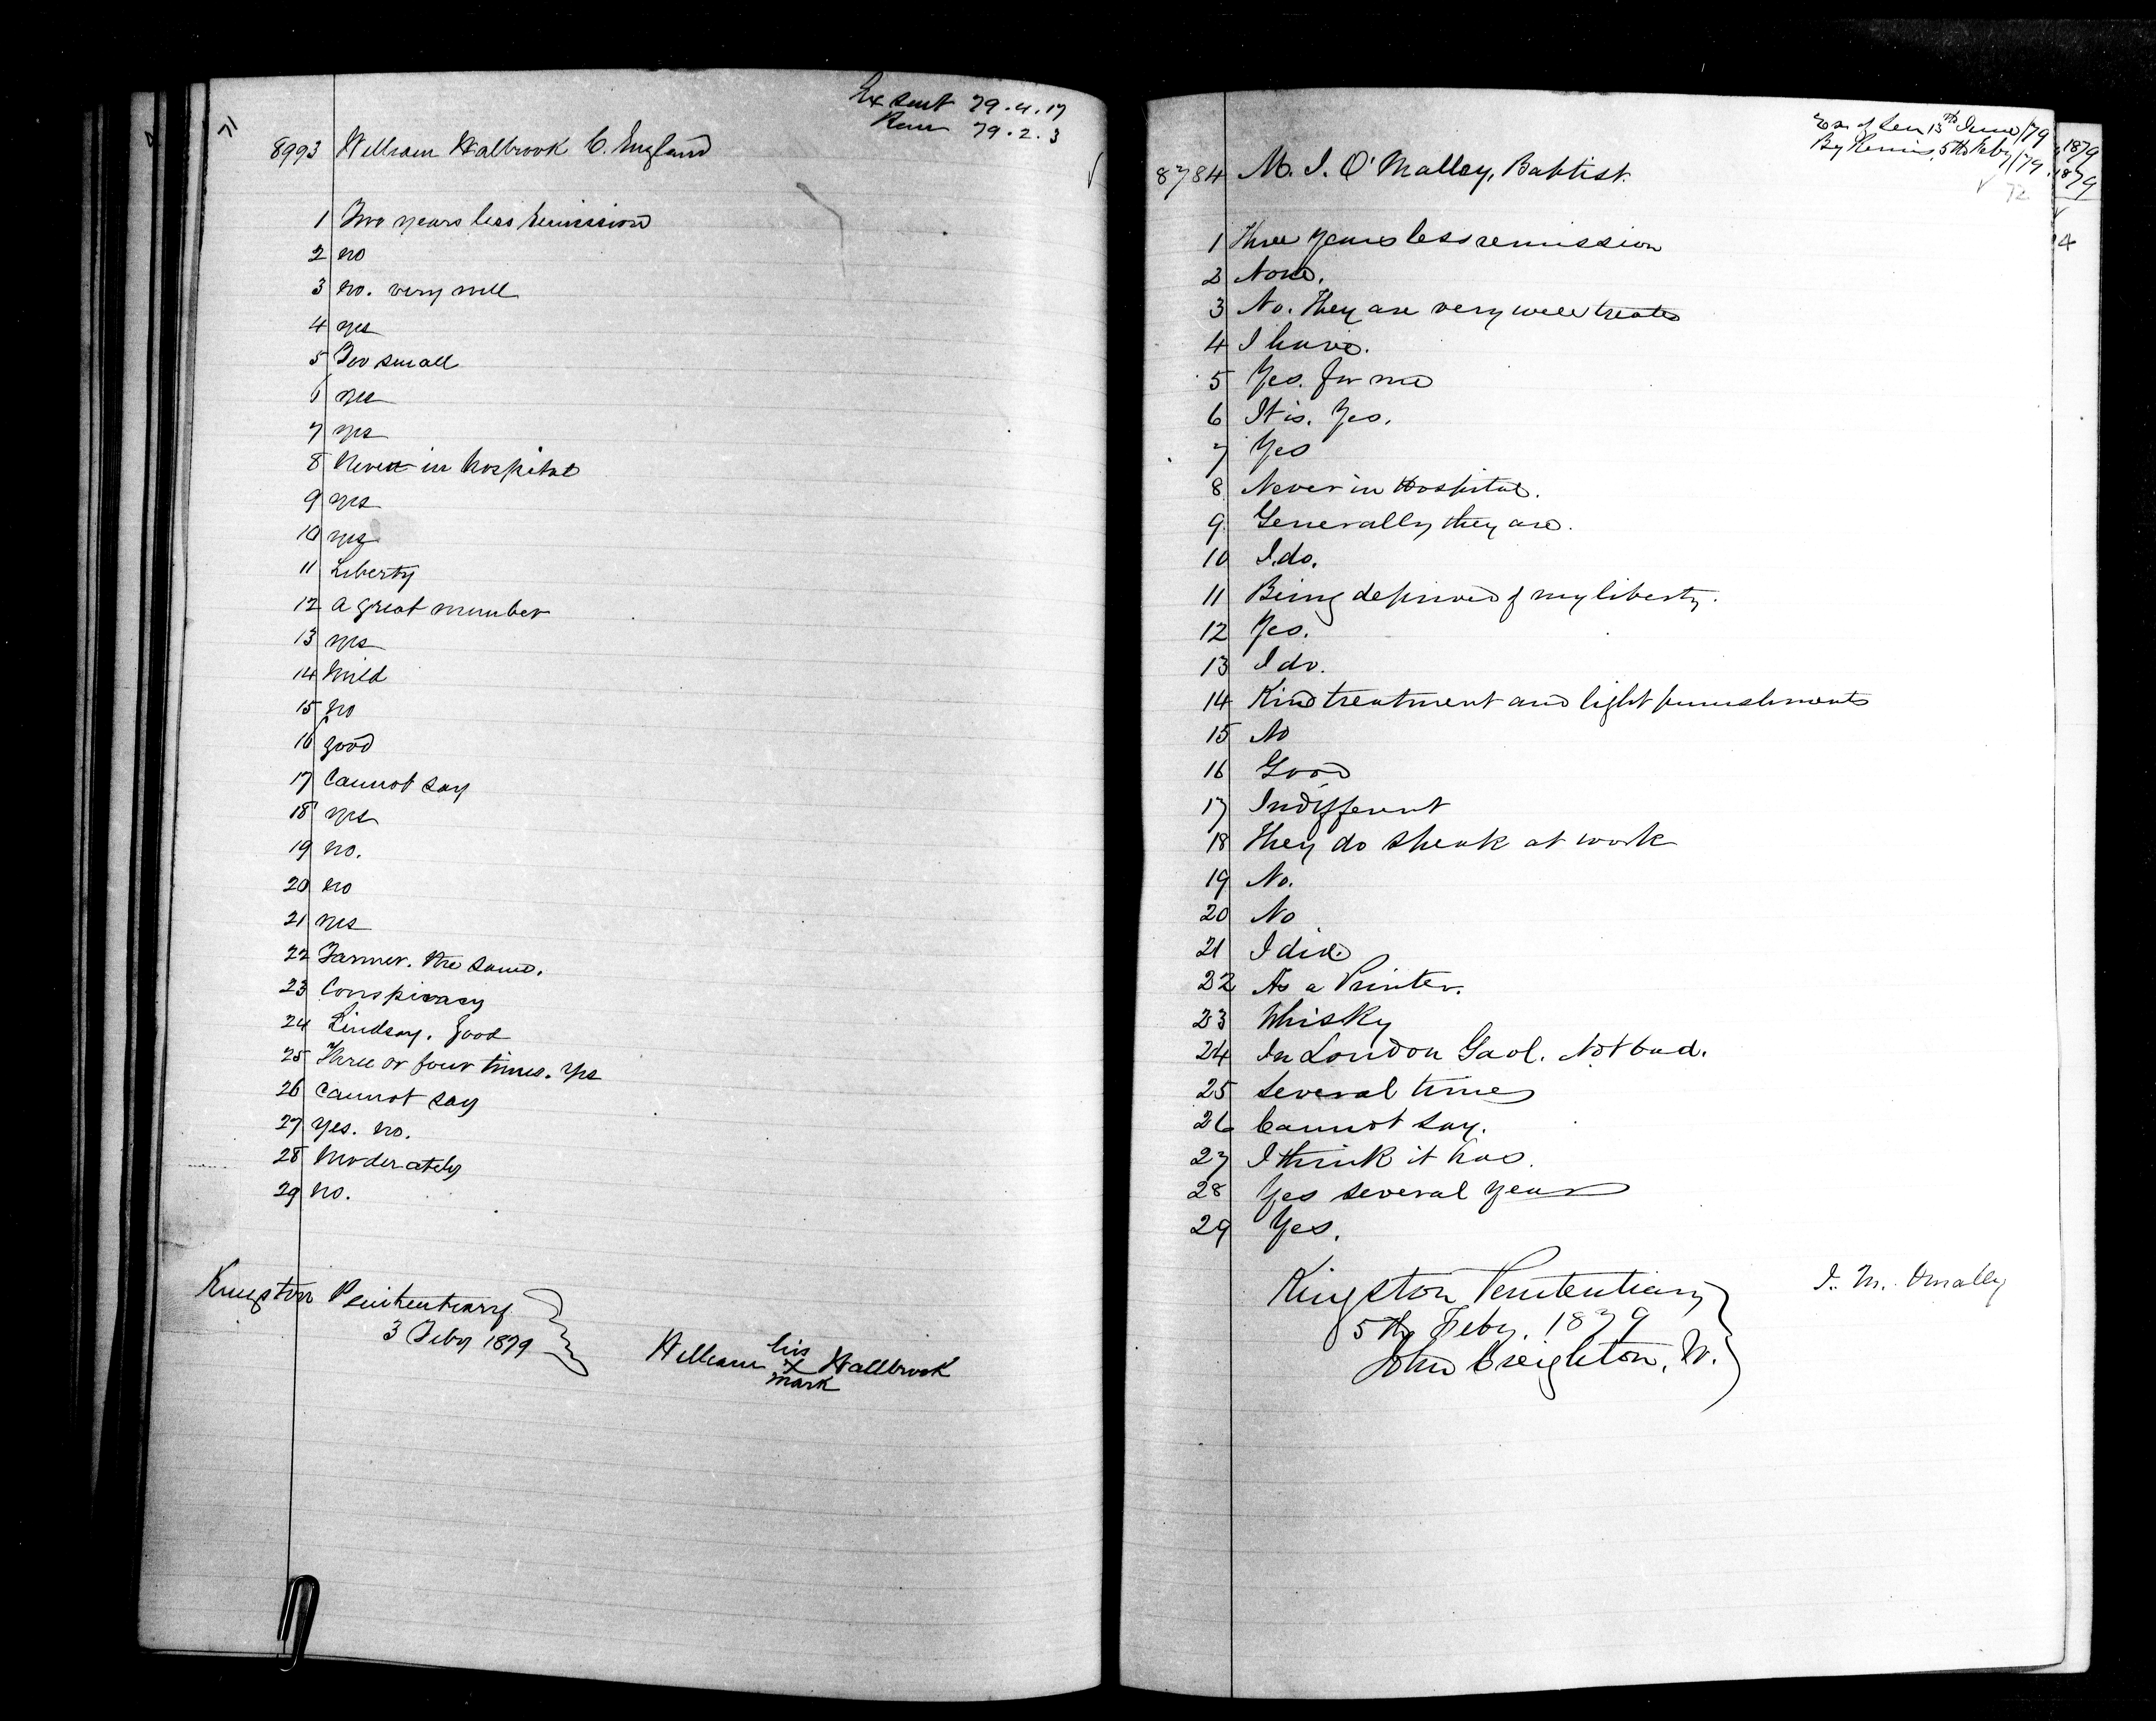 71
Ex Sent 79.4.17
Rem 79.2.3
8993 William Halbrook C. England
1 Two years less remission
2 no
3 no. very well
4 yes
5 Too small
6 yes
7 yes
8 Never in hospital
9 yes
10 yes
11 Liberty
12 A great number
13 yes
14 Mild
15 no
16 good
17 Cannot say
18 yes
19 no.
20 no
21 yes
22 Farmer. The same.
23 Conspiracy
24 Lindsay. Good
25 Three or four times. Yes
26 Cannot say
27 Yes. no.
28 Moderately
29 no.
Kingston Penitentiary
3 Feby 1879
William his x mark Hallbrook
Ex. of Sen 13th June/79
By Remis, 5th Feby/79
72
8784 M. I. O'Malley, Baptist.
1 Three years less remission
2 None.
3 No. They are very well treated
4 I have.
5 Yes. for me
6 It is. Yes.
7 Yes
8 Never in Hospital.
9 Generally they are.
10 I do.
11 Being deprived of my liberty.
12 Yes.
13 I do.
14 Kind treatment and light punishments
15 No
16 Good
17 Indifferent
18 They do speak at work
19 No.
20 No
21 I did.
22 As a Printer.
23 Whisky
24 In London Gaol. Not bad.
25 Several times
26 Cannot say.
27 I think it has.
28 Yes several years
29 Yes.
Kingston Penitentiary
5th Feby. 1879
John Creighton, W.
I. M. Omally
1879
1879
4